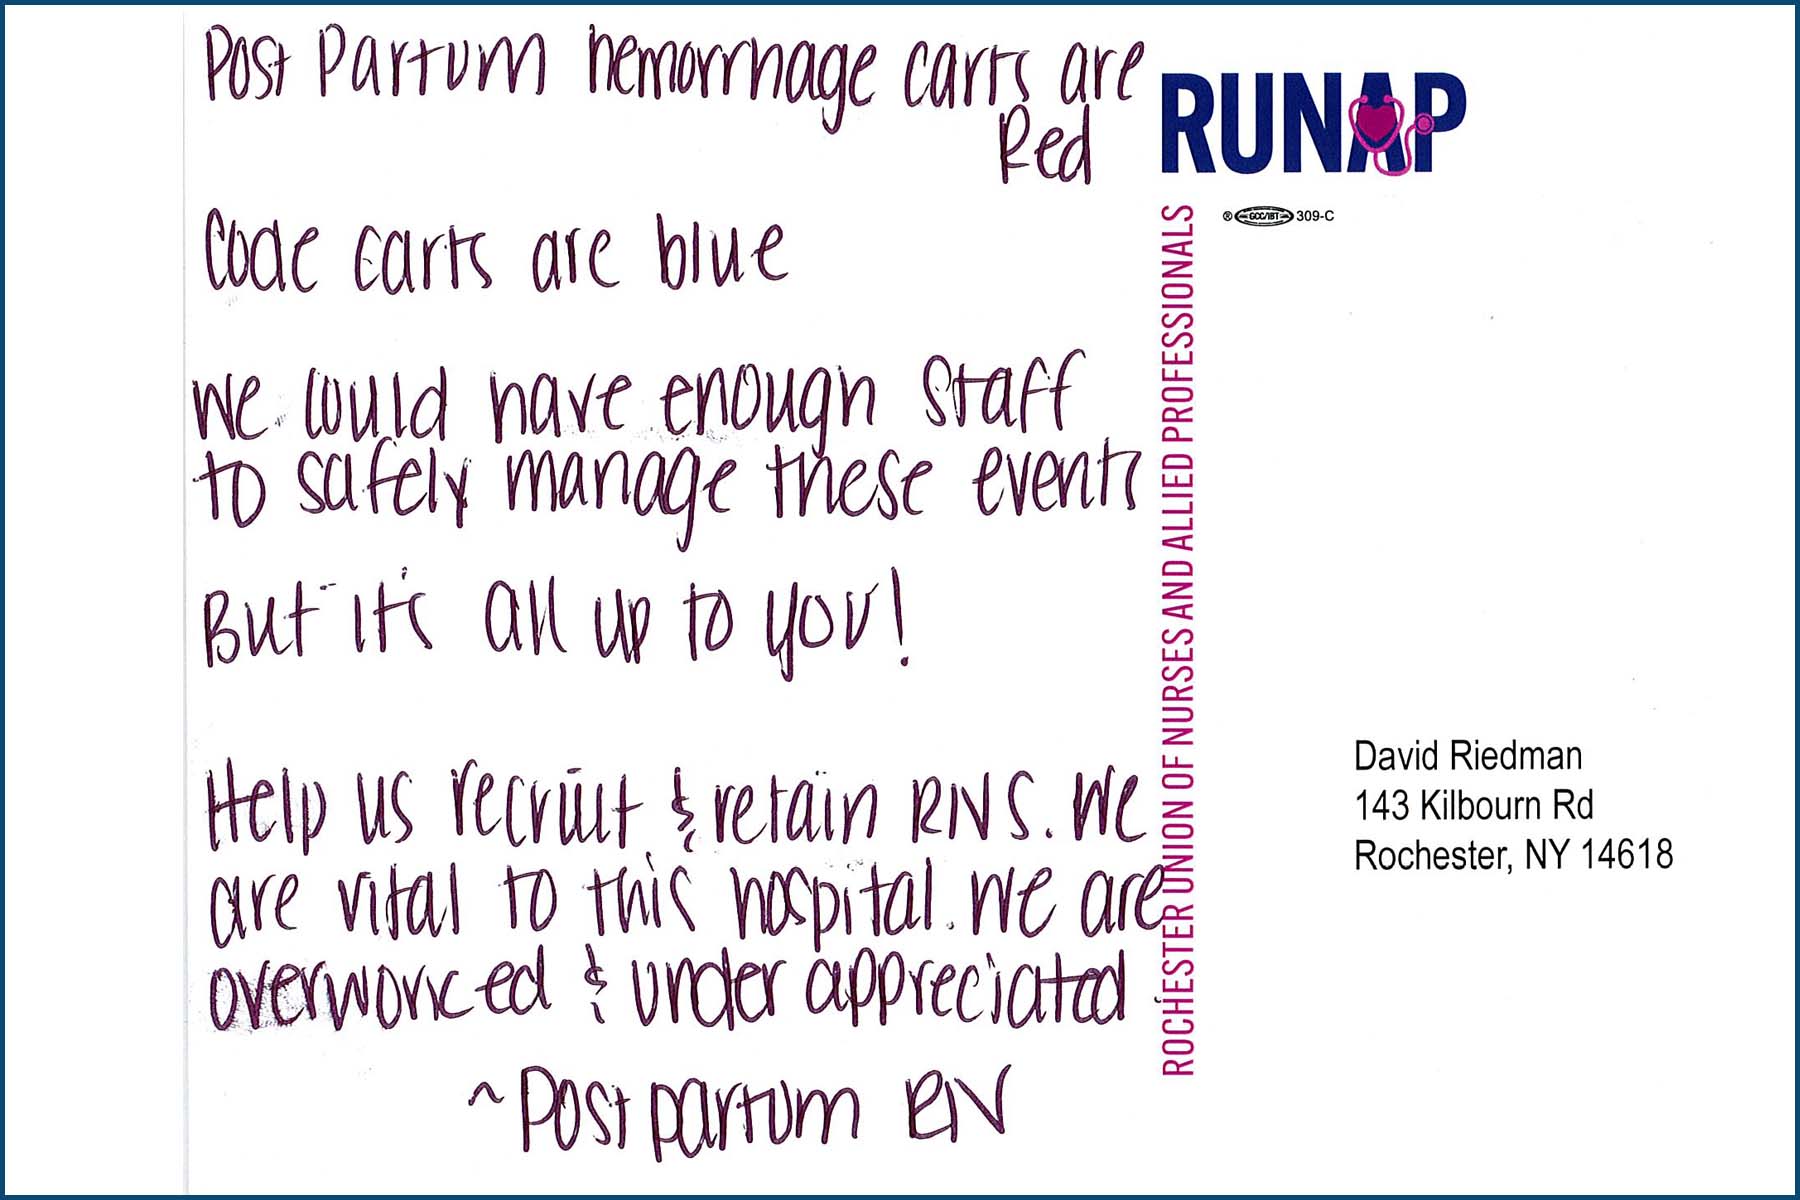 Post Partum hemorrhage carts are
Red
Code carts are blue
We could have enough staff
to safely manage these events
But it's all up to you!
Help us recruit & retain RNS. We
are vital to this hospital. We are
overworked & under appreciated
~Post partum RN
RUNAP
® GCC/IBT 309-C
ROCHESTER UNION OF NURSES AND ALLIED PROFESSIONALS
David Riedman
143 Kilbourn Rd
Rochester, NY 14618